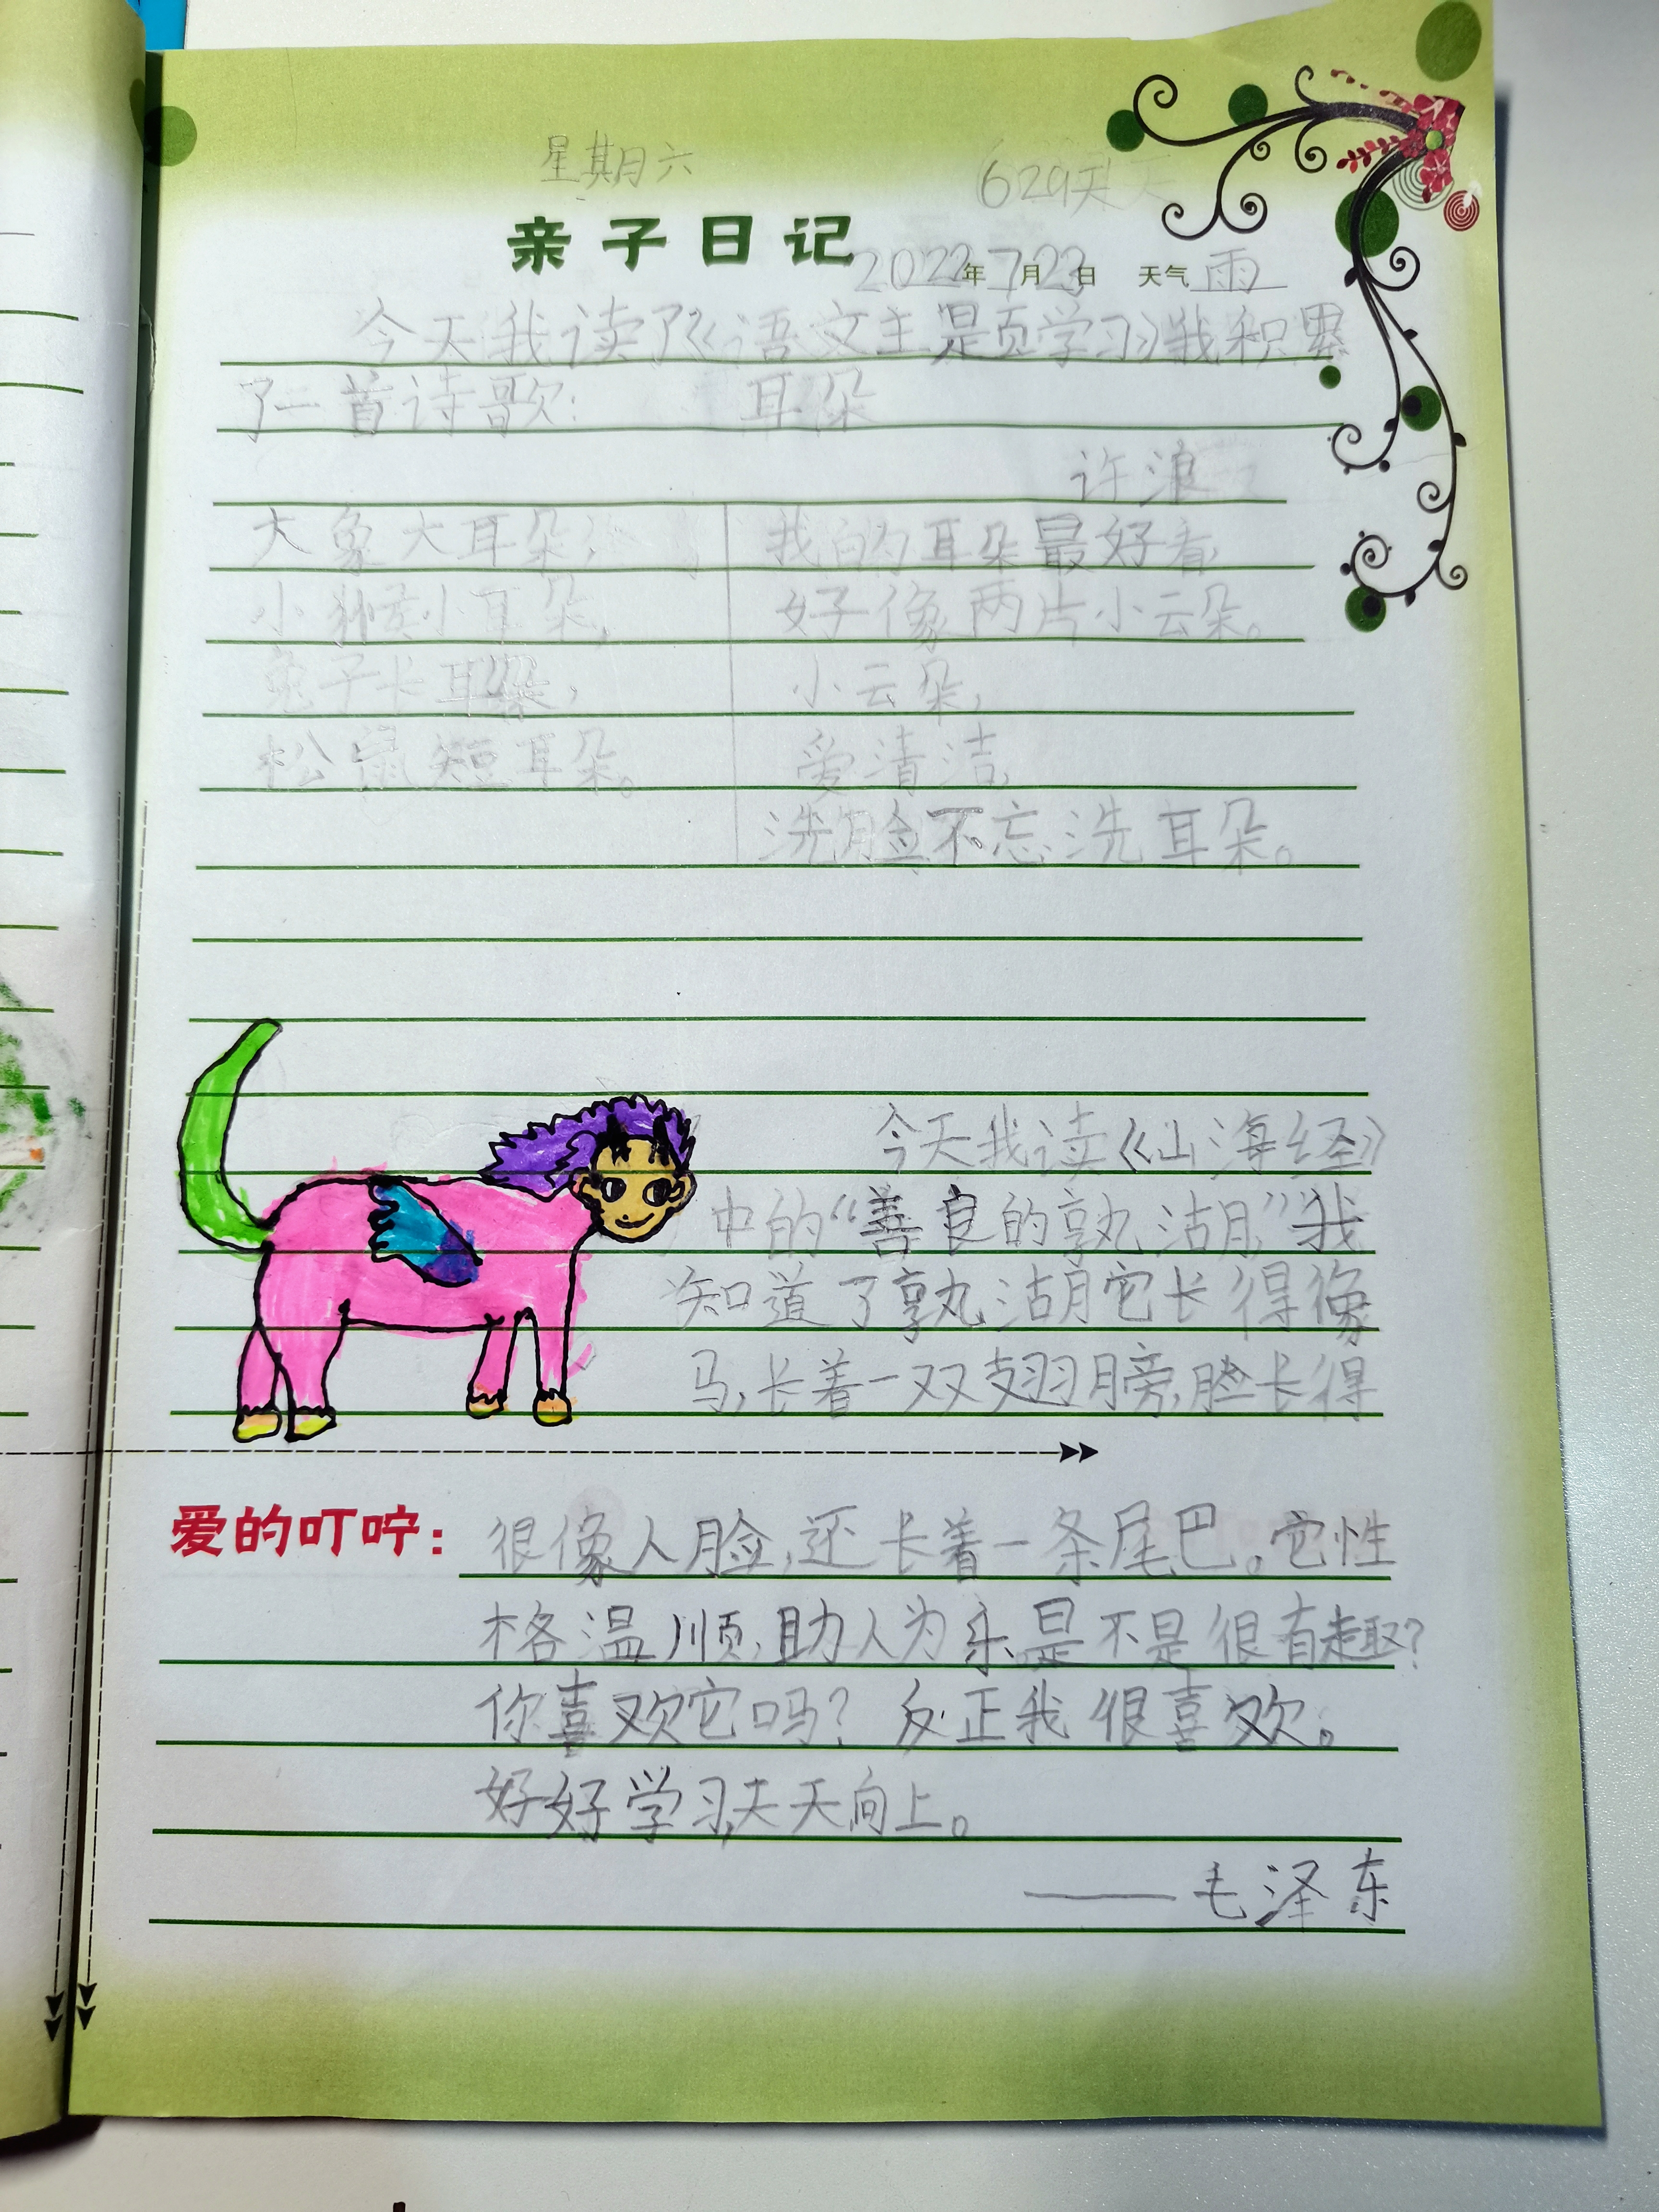 星期六
629天
亲子日记 2022年7月23日 天气 雨
今天我读了《语文主是页学习》我积累
了一首诗歌: 耳朵
许浪
大象大耳朵,
小猴小耳朵,
兔子长耳朵,
松鼠短耳朵。
我的耳朵最好看,
好像两片小云朵。
小云朵,
爱清洁,
洗脸不忘洗耳朵。
今天我读《山海经》
中的“善良的孰湖”我
知道了孰湖它长得像
马,长着一双翅膀,脸长得
爱的叮咛: 很像人脸,还长着一条尾巴。它性
格温顺,助人为乐是不是很有趣?
你喜欢它吗?反正我很喜欢。
好好学习,天天向上。
——毛泽东